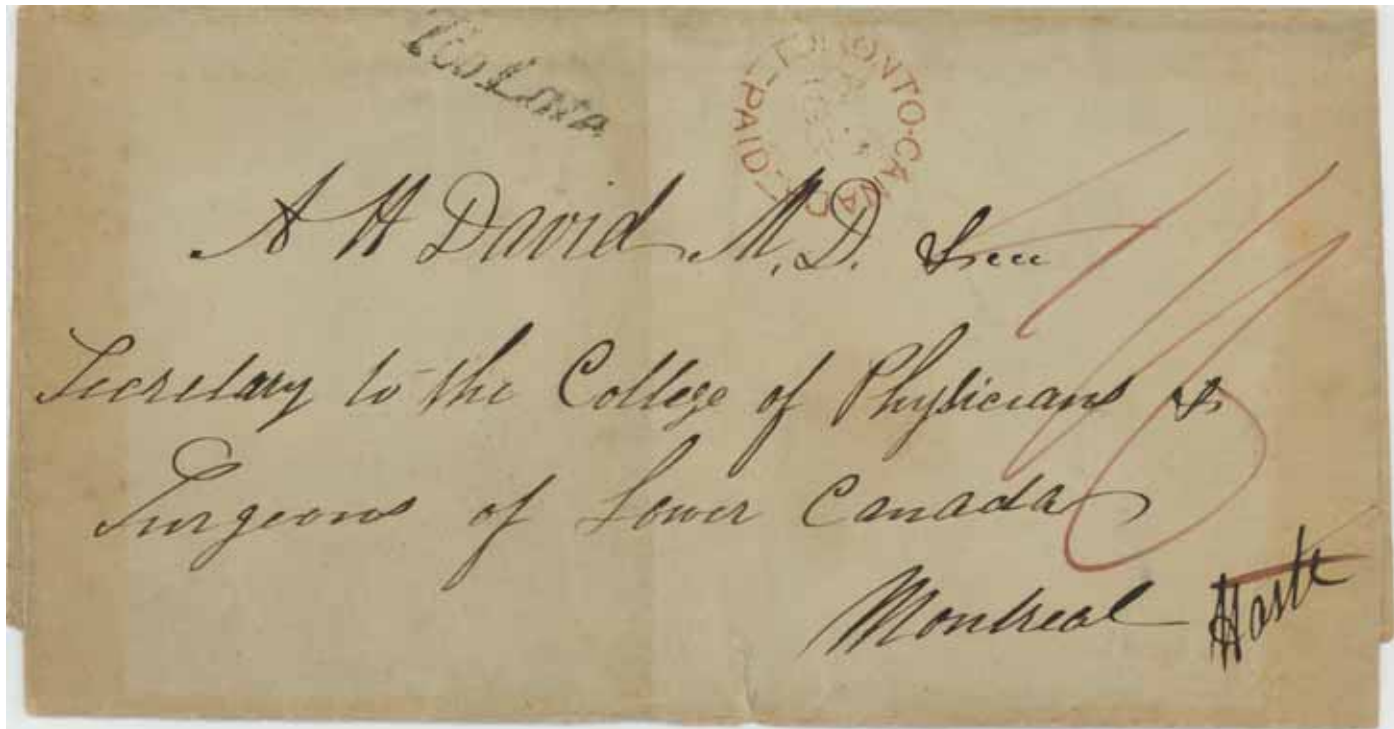 Too Late
PAID - TORONTO · CANADA
A H David M.D.
Secretary to the College of Physicians &
Surgeons of Lower Canada
Montreal